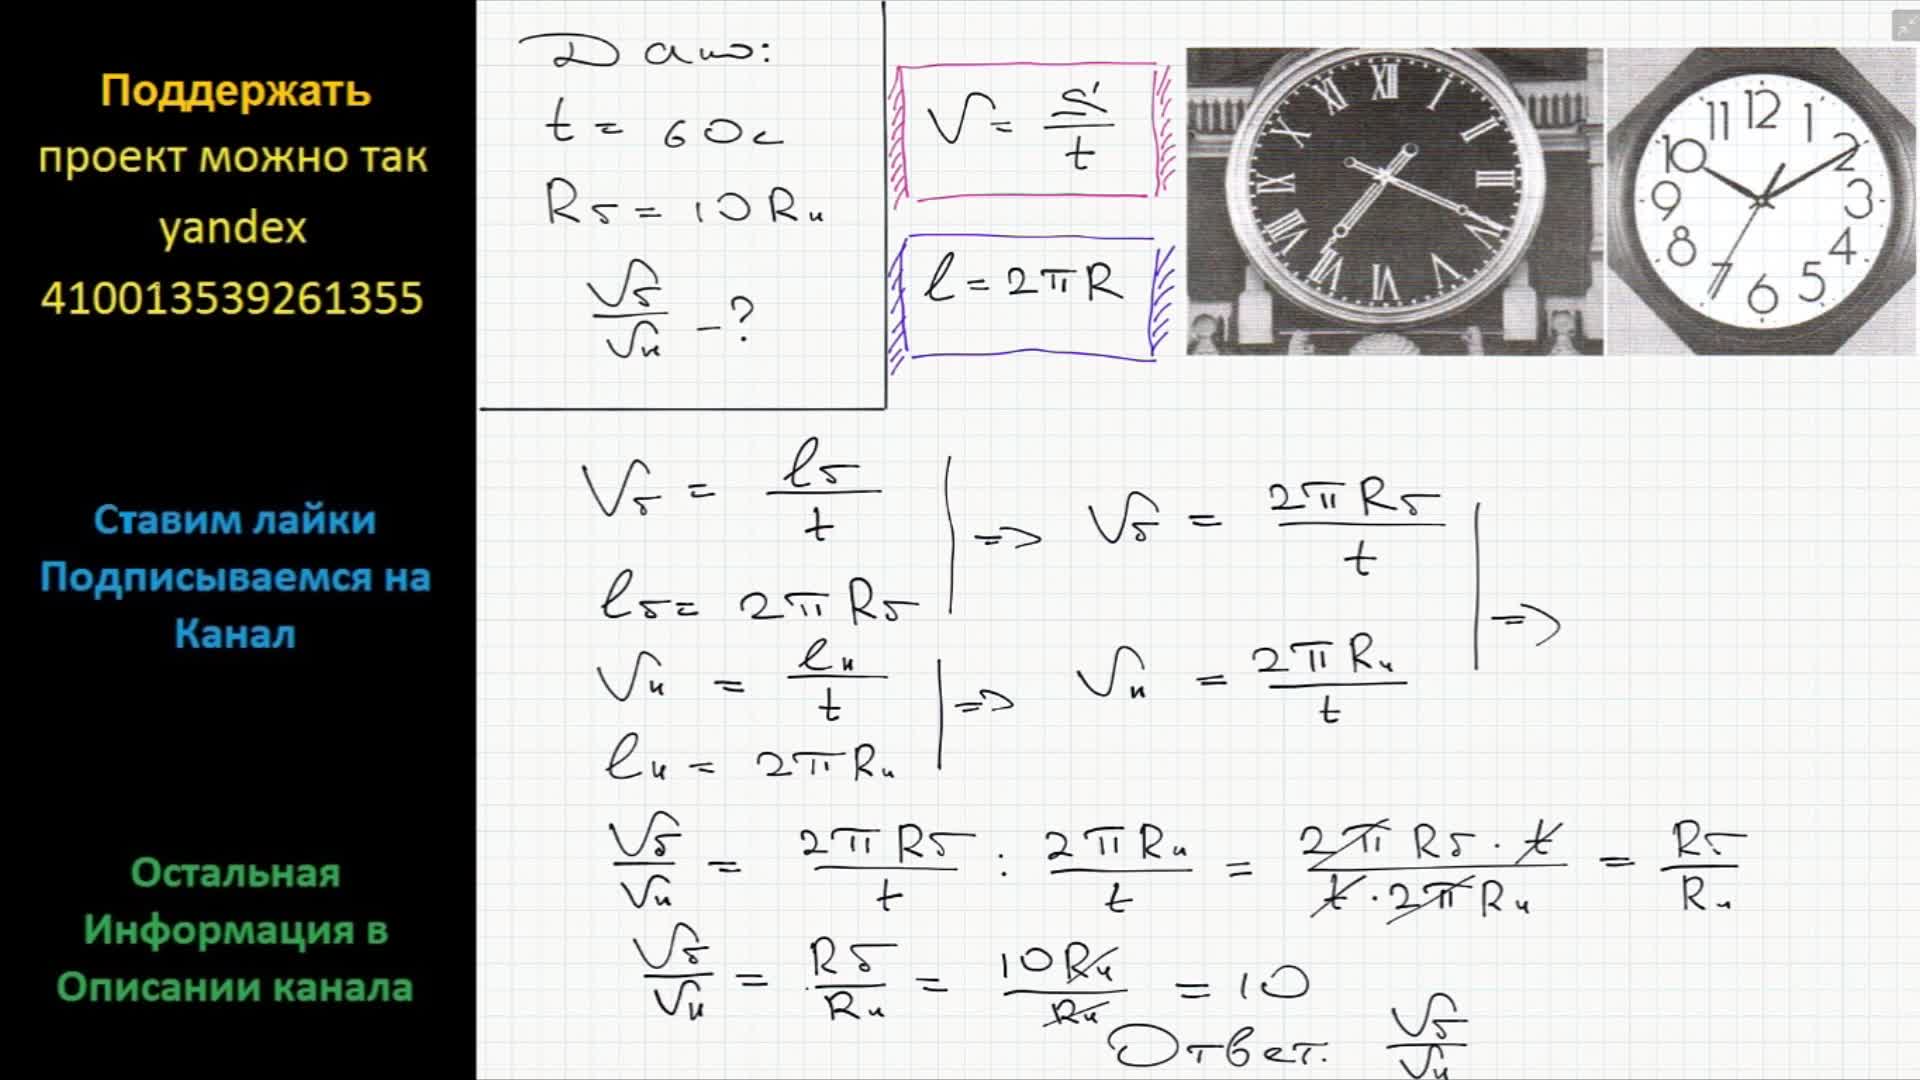 Поддержать
проект можно так
yandex
410013539261355
Ставим лайки
Подписываемся на
Канал
Остальная
Информация в
Описании канала
Дано:
t = 60 с
Rб = 10 Rм
Vб/Vм - ?
V = S/t
l = 2πR
XII I II III IV V VI VII VIII IX X XI
12 1 2 3 4 5 6 7 8 9 10 11
Vб = lб/t
lб = 2πRб
=> Vб = 2πRб/t
Vм = lм/t
lм = 2πRм
=> Vм = 2πRм/t
=>
Vб/Vм = 2πRб/t : 2πRм/t = 2πRб·t/t·2πRм = Rб/Rм
Vб/Vм = Rб/Rм = 10Rм/Rм = 10
Ответ: Vб/Vм